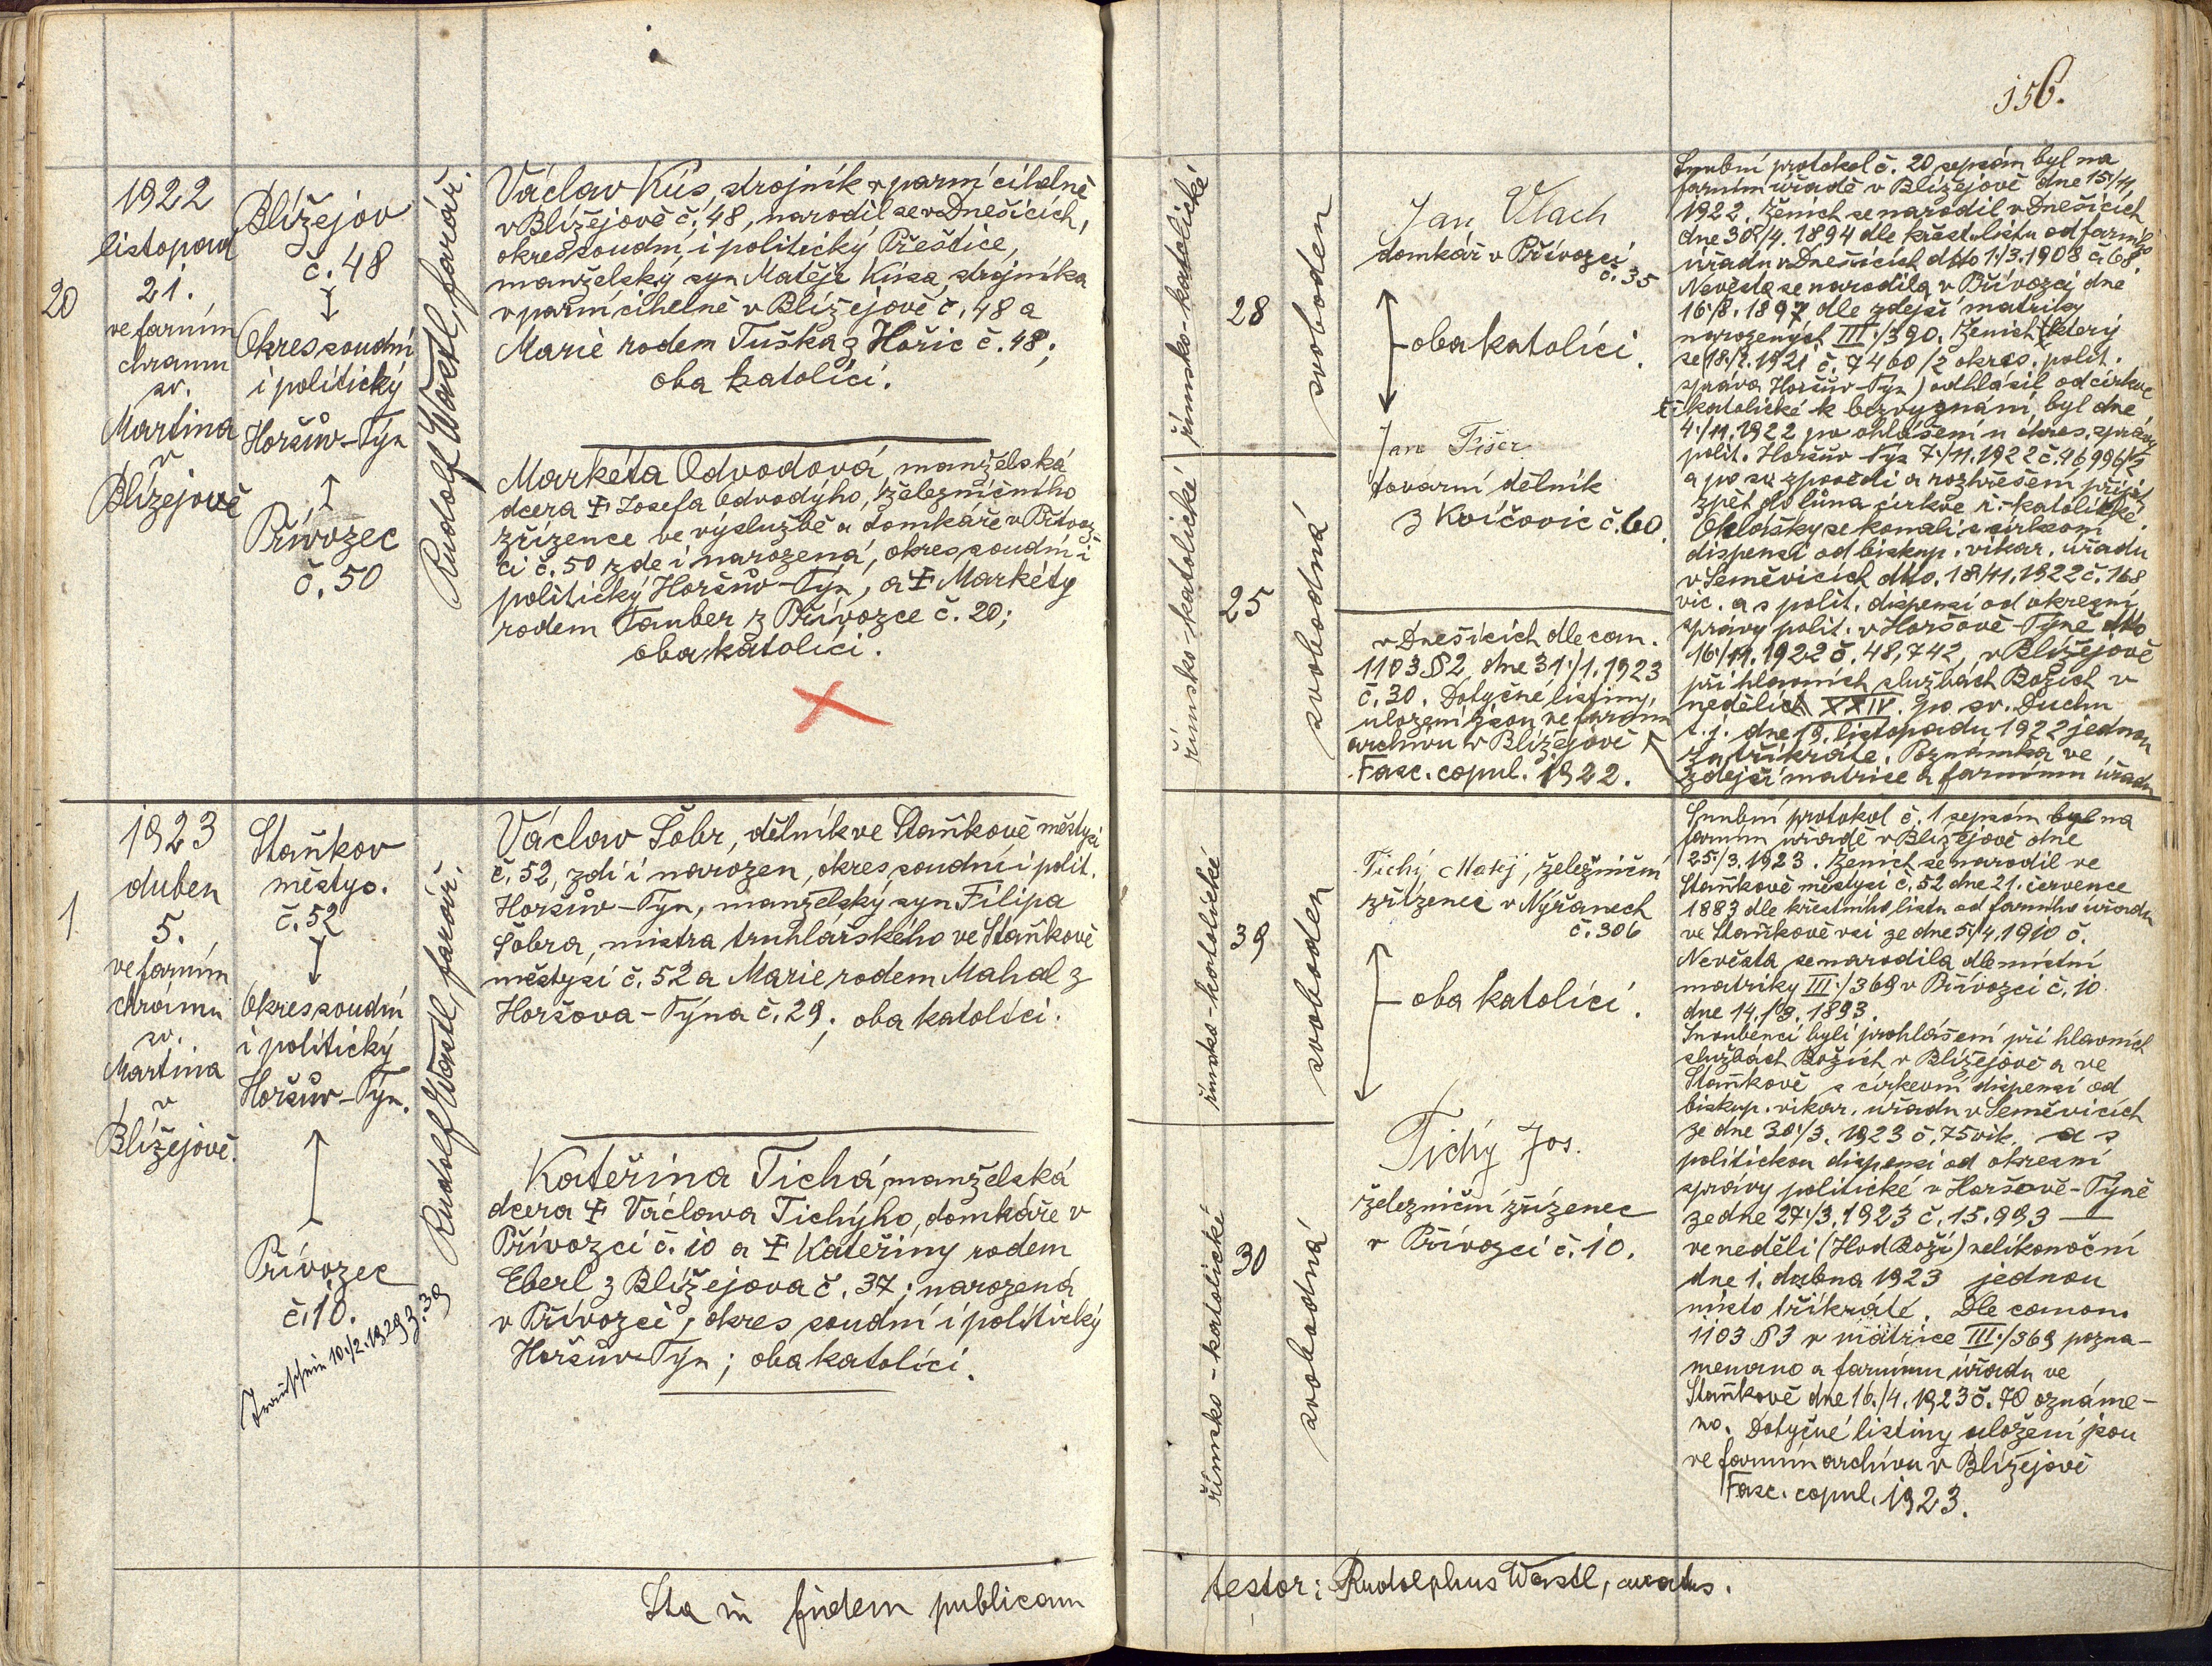 156.
20
1922
listopad
21.
ve farním
chrámu
sv.
Martina
v
Blížejově
Blížejov
č. 48
Okres soudní
i politický
Horšův-Týn
Přívozec
č. 50
Rudolf Wastl, farář.
Václav Kús, strojník v parní cihelně
v Blížejově č. 48, narodil se v Dnešicích,
okres soudní i politický Přeštice,
manželský syn Matěje Kúsa, strojníka
v parní cihelně v Blížejově č. 48 a
Marie rodem Tuška z Hořic č. 48;
oba katolíci.
Markéta Odvodová, manželská
dcera ✝ Josefa Odvodýho, železničního
zřízence ve výslužbě a domkáře v Přívoz-
ci č. 50, zde i narozená, okres soudní i
politický Horšův-Týn, a ✝ Markéty
rodem Tauber z Přívozce č. 20;
oba katolíci.
římsko-katolické
28
svoboden
římsko-katolické
25
svobodná
Jan Vlach
domkář v Přívozci
č. 35
oba katolíci.
Jan Fišer
tovární dělník
z Kvíčovic č. 60.
Snubní protokol č. 20 sepsán byl na
farním úřadě v Blížejově dne 15/11.
1922. Ženich se narodil v Dnešicích
dne 30/4. 1894 dle křest. listu od farního
úřadu v Dnešicích ddto 1./3. 1908 č. 68.
Nevěsta se narodila v Přívozci dne
16/8. 1897 dle zdejší matriky
narozených III./390. Ženich (který
se 18/2. 1921 č. 7460/2 okres. polit.
správa Horšův-Týn) odhlásil od církve
ř. katolické k bezvyznání, byl dne
4./11. 1922 po ohlášení u okres. správy
polit. Horšův-Týn 7./11. 1922 č. 46996/2
a po sv. zpovědi a rozhřešení přijat
zpět do lůna církve ř.-katolické.
Ohlášky se konali s církevní
dispensí od biskup. vikar. úřadu
v Semněvicích ddto. 18/11. 1922 č. 168
vic. a s polit. dispensí od okresní
správy polit. v Horšově-Týně ddto
16./11. 1922 č. 48,742, v Blížejově
při hlavních službách Božích v
neděli XXIV. po sv. Duchu
t. j. dne 19. listopadu 1922 jednou
za tříkráte. Poznámka ve
zdejší matrice a farnímu úřadu
v Dnešicích dle can.
1103 § 2, dne 31./1. 1923
č. 30. Dotyčné listiny
uloženi jsou ve farním
archivu v Blížejově
Fasc. copul. 1922.
1
1923
duben
5.
ve farním
chrámu
sv.
Martina
v
Blížejově.
Staňkov
městys.
č. 52
Okres soudní
i politický
Horšův-Týn.
Přívozec
č. 10.
10./2. 1929 z. 39
Rudolf Wastl, farář.
Václav Šobr, dělník ve Staňkově městysi
č. 52, zde i narozen, okres soudní i polit.
Horšův-Týn, manželský syn Filipa
Šobra, mistra truhlářského ve Staňkově
městysi č. 52 a Marie rodem Mahal z
Horšova-Týna č. 29; oba katolíci.
Kateřina Tichá, manželská
dcera ✝ Václava Tichýho, domkáře v
Přívozci č. 10 a ✝ Kateřiny rodem
Eberl z Blížejova č. 37; narozená
v Přívozci, okres soudní i politický
Horšův-Týn; oba katolíci.
římsko-katolické
39
svoboden
římsko-katolické
30
svobodná
Tichý Matěj, železniční
zřízenec v Nýřanech
č. 306
oba katolíci.
Tichý Jos.
železniční zřízenec
v Přívozci č. 10.
Snubní protokol č. 1 sepsán byl na
farním úřadě v Blížejově dne
25./3. 1923. Ženich se narodil ve
Staňkově městysi č. 52 dne 21. července
1883 dle křestního listu od farního úřadu
ve Staňkově vsi ze dne 5./4. 1910 č.
Nevěsta se narodila dle místní
matriky III./369 v Přívozci č. 10
dne 14./3. 1893.
Snoubenci byli prohlášeni při hlavních
službách Božích v Blížejově a ve
Staňkově s církevní dispensí od
biskup. vikar. úřadu v Semněvicích
ze dne 30./3. 1923 č. 75 vik. a s
politickou dispensí od okresní
správy politické v Horšově-Týně
ze dne 27./3. 1923 č. 15.993 —
ve neděli (Hod Boží) velikonoční
dne 1. dubna 1923 jednou
místo tříkráté. Dle canon.
1103 § 3 v matrice III./369 pozna-
menáno a farnímu úřadu ve
Staňkově dne 16./4. 1923 č. 70 oznáme-
no. Dotyčné listiny uloženi jsou
ve farním archivu v Blížejově
Fasc. copul. 1923.
Ita in fidem publicam
testor: Rudolphus Wastl, curatus.